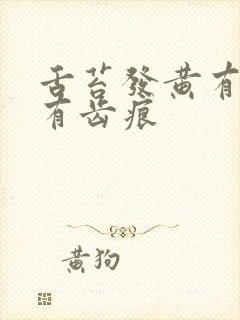 舌苔發黄有
有齿痕
黄狗